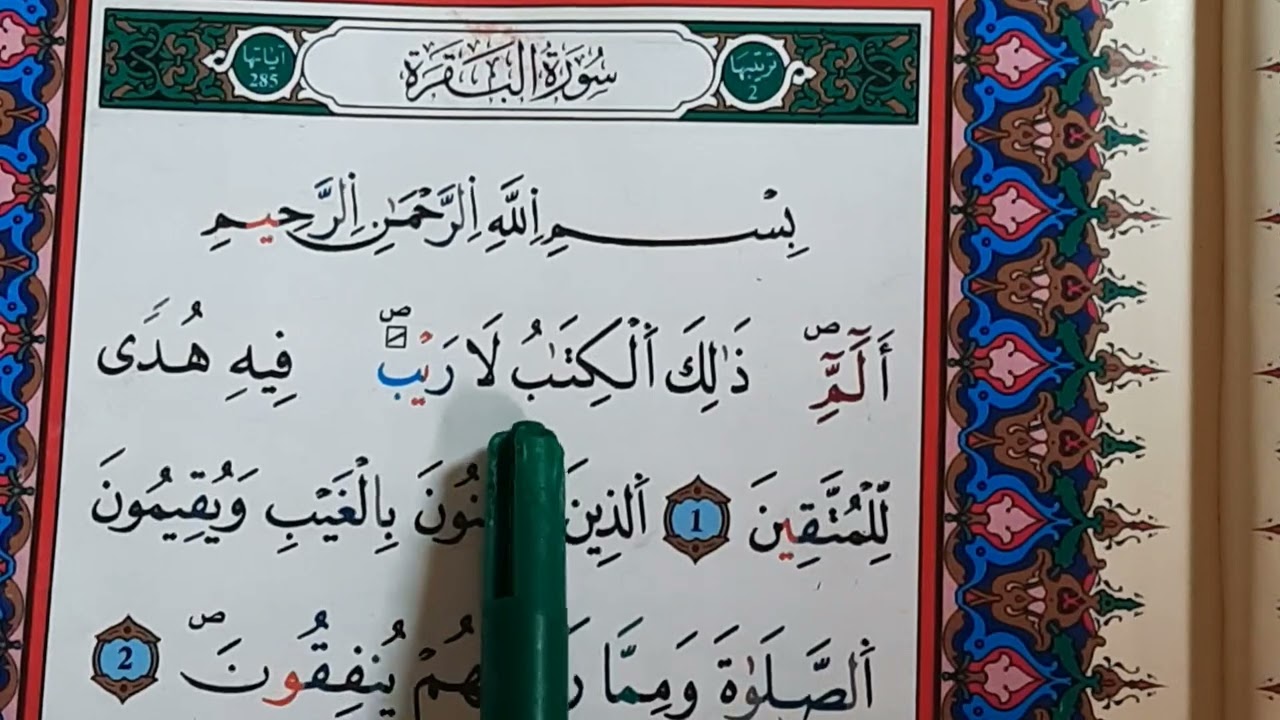 ترتيبها 2
سُورَةُ البَقَرَةِ
آياتها 285
بِسْمِ اِ۬للَّهِ اِ۬لرَّحْمَٰنِ اِ۬لرَّحِيمِ
أَلَٓمِّٓۖ ذَٰلِكَ اَ۬لْكِتَٰبُ لَا رَيْبَۖ فِيهِ هُدىَ
لِّلْمُتَّقِينَ 1 اَ۬لذِينَ بِالْغَيْبِ وَيُقِيمُونَ
اَ۬لصَّلَوٰةَ وَمِمَّا يُنفِقُونَۖ 2